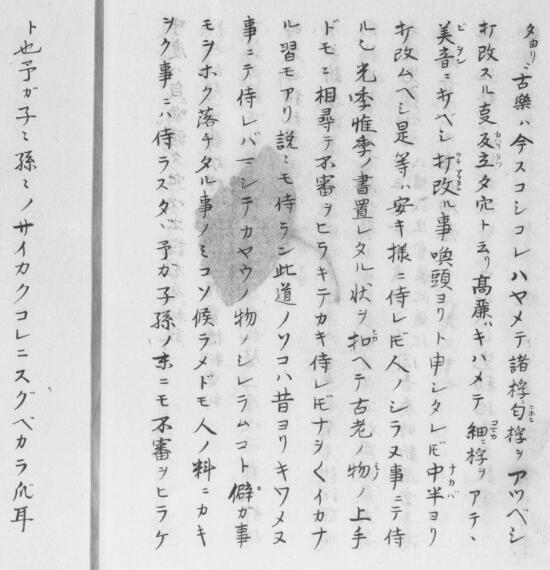 古樂ハ今スコシコレハヤメテ諸桴匂桴ヲアツベシ
打改スル㕝及立タ宍ト云リ髙麗ハキハメテ細ニ桴ヲアテヽ
美音ニ打ベシ打改ル事喚頭ヨリト申シタレ𪜈中半ヨリ
打改ムヘシ是等ハ安キ様ニ侍レ𪜈人ノシラヌ事ニテ侍
ルシ光季惟季ノ書置レタル状ヲ扣ヘテ古老ノ物ノ上手
ドモニ相尋テ不審ヲヒラキテカキ侍レ𪜈ナヲ〱イカナ
ル習モアリ説ミモ侍ラン此道ノソコハ昔ヨリキワメヌ
事ニテ侍レバマシテカヤウノ物ノシレラムコト僻ガ事
モヲホク落チタル事ノミコソ候ラメドモ人ノ料ニカキ
ヲク事ニハ侍ラスタヾ予ガ子孫ノ末ニモ不審ヲヒラケ
ト也予ガ子ミ孫ミノサイカクコレニスグベカラ爪耳